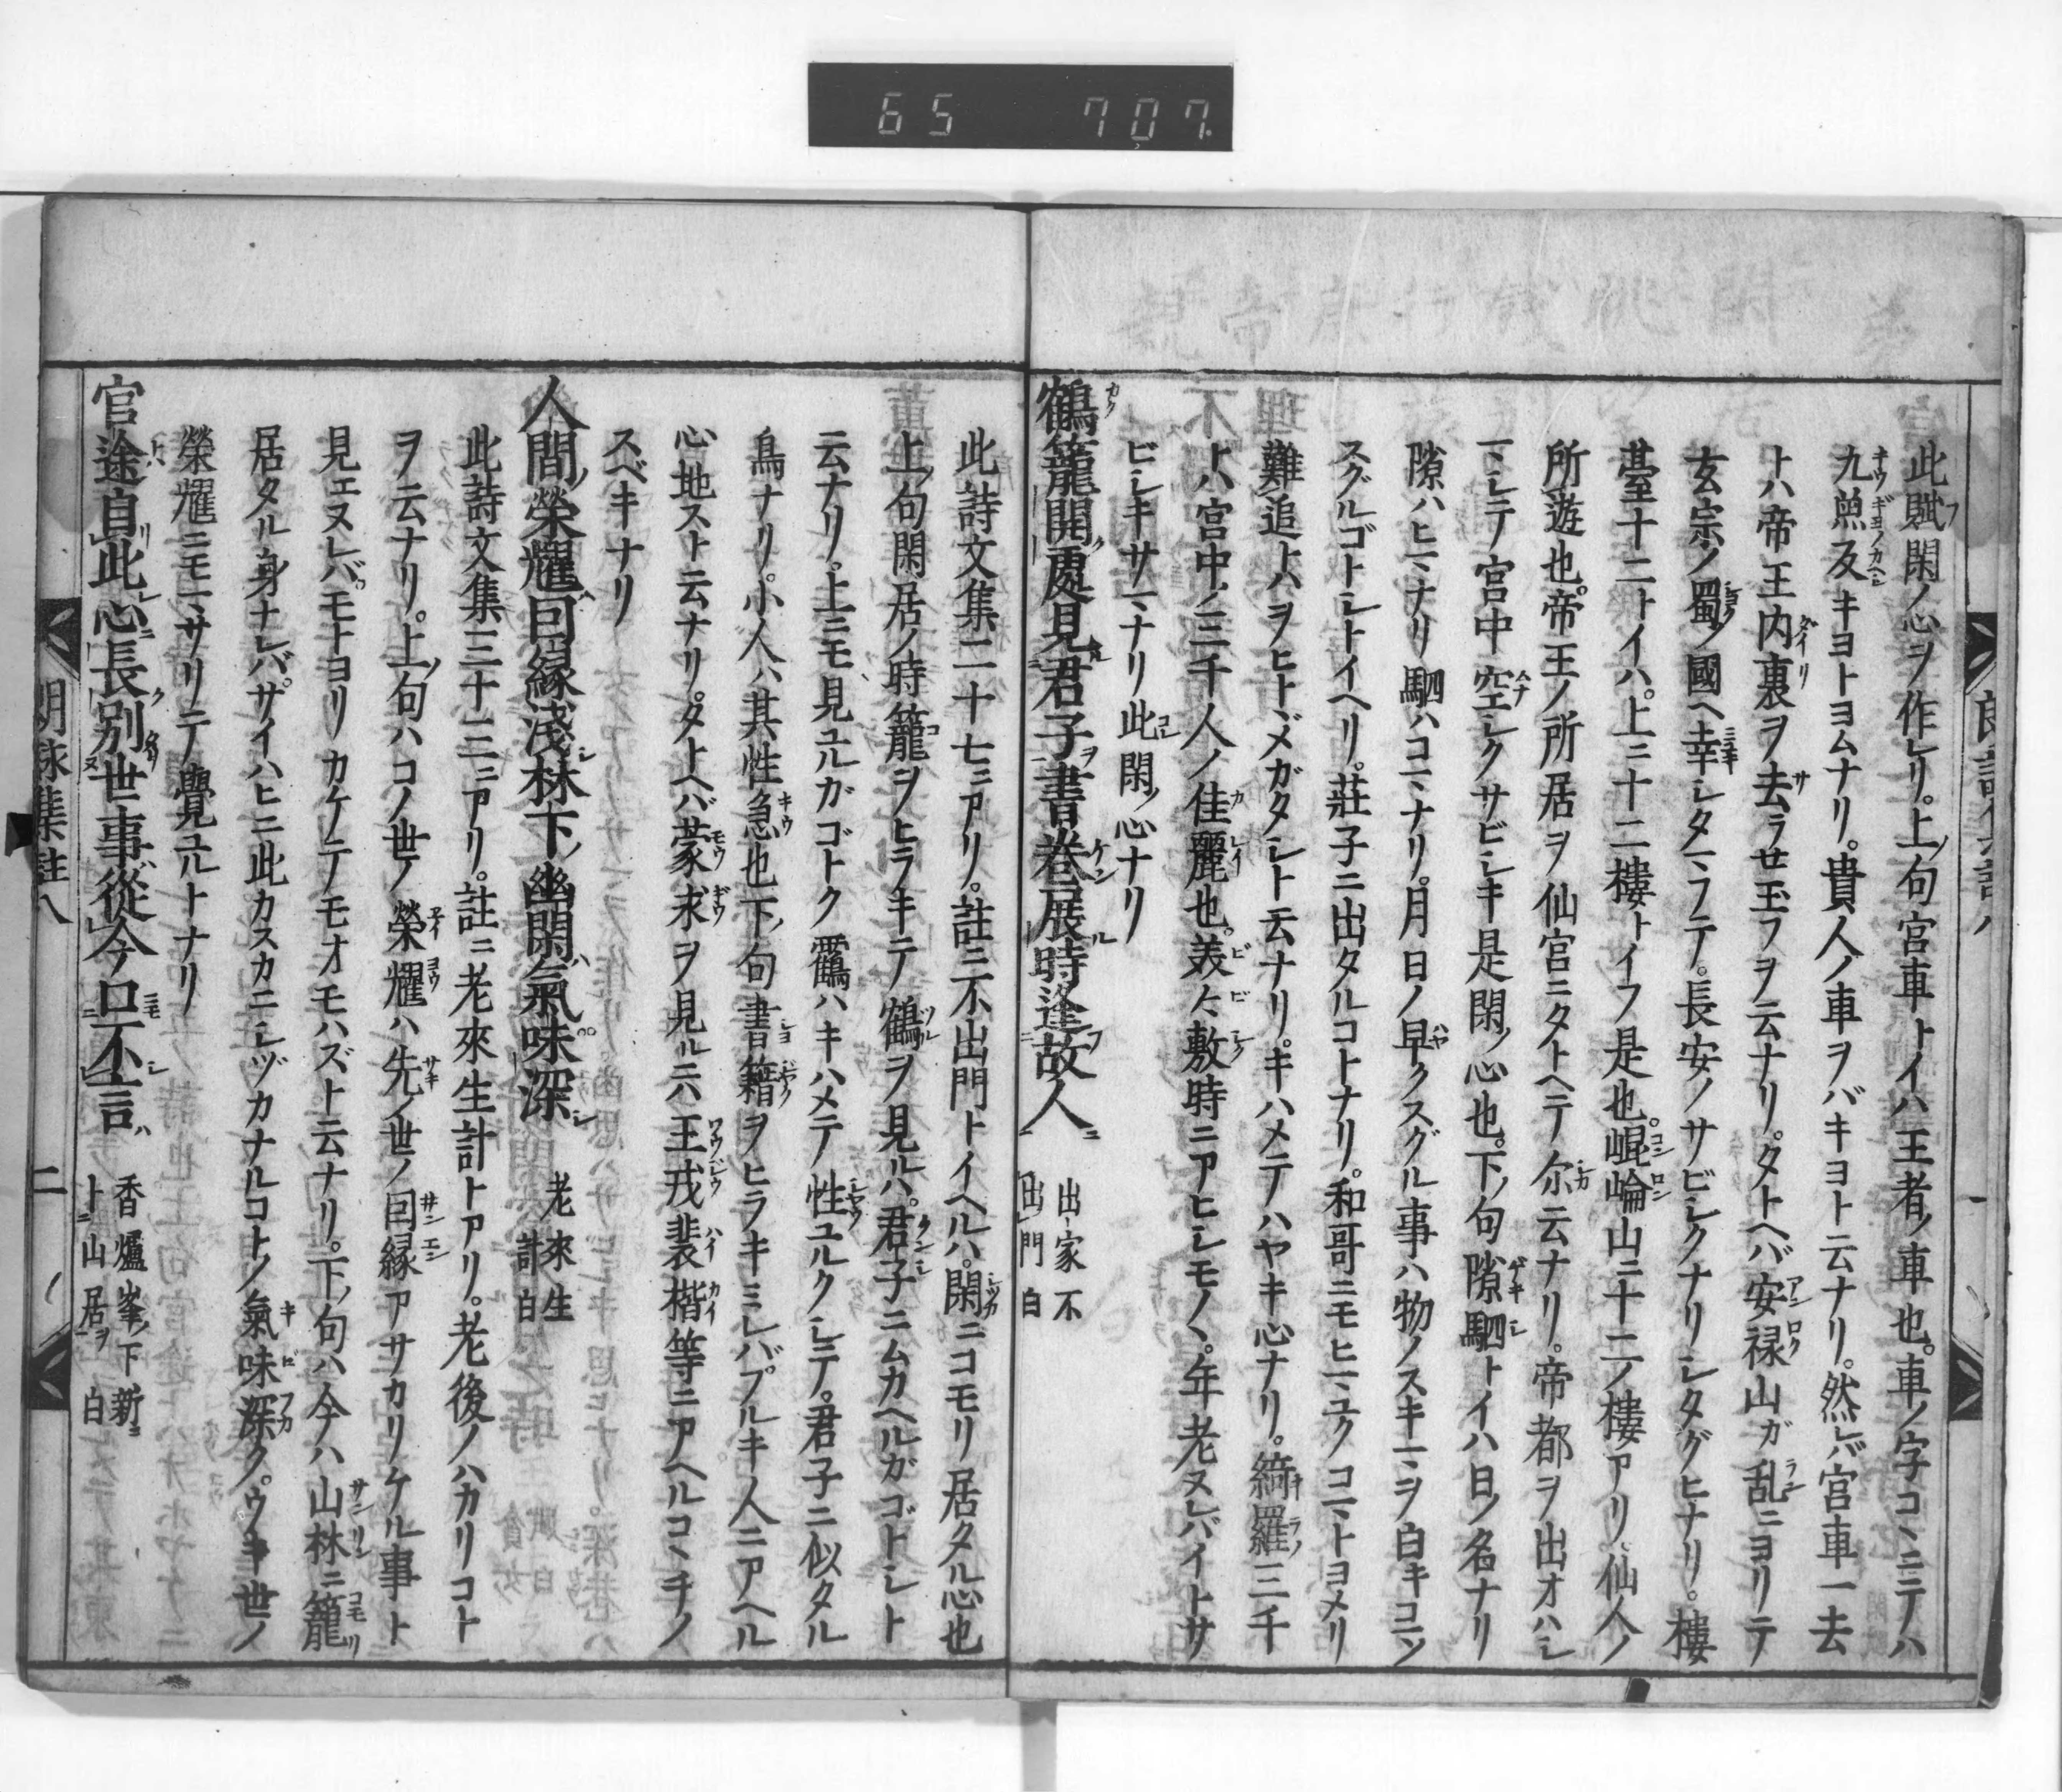 65 707.
此賦閑ノ心ヲ作レリ。上ノ句宮車トイハ王者ノ車也。車ノ字コヽニテハ
九魚反キヨトヨムナリ。貴人ノ車ヲバキヨト云ナリ。然レバ宮車一去
トハ帝王内裏ヲ去ラセ玉フヲ云ナリ。タトヘバ安禄山ガ乱ニヨリテ
玄宗ノ蜀ノ國ヘ幸シタマフテ。長安ノサビシクナリシタグヒナリ。樓
臺十二トイハ。上ニ十二樓トイフ是也。崐崘山ニ十二ノ樓アリ。仙人ノ
所遊也。帝王ノ所居ヲ仙宮ニタトヘテ尓云ナリ。帝都ヲ出オハシ
マシテ宮中空シクサビシキ是閑ノ心也。下ノ句隙駟トイハ日ノ名ナリ
隙ハヒマナリ駟ハコマナリ。月日ノ早クスグル事ハ物ノスキマヲ白キコマノ
スグルゴトシトイヘリ。莊子ニ出タルコトナリ。和哥ニモヒマユクコマトヨメリ
難追トハヲヒトヾメガタシト云ナリ。キハメテハヤキ心ナリ。綺羅三千
トハ宮中ノ三千人ノ佳麗也。美々敷時ニアヒシモノヽ。年老ヌレバイトサ
ビシキサマナリ此閑ノ心ナリ
鶴籠開處見君子書巻展時逢故人 出家不出門 白
此詩文集二十七ニアリ。註ニ不出門トイヘルハ。閑ニコモリ居タル心也
上ノ句閑居ノ時籠ヲヒラキテ鶴ヲ見ルハ。君子ニムカヘルガゴトシト
云ナリ。上ニモ見ユルガゴトク靍ハキハメテ性ユルクシテ。君子ニ似タル
鳥ナリ。小人ハ其性急也下ノ句書籍ヲヒラキミレバフルキ人ニアヘル
心地スト云ナリ。タトヘバ蒙求ヲ見ルニハ王戎裴楷等ニアヘルコヽチノ
スベキナリ
人間ノ榮耀ハ因縁淺シ林下ノ幽閑ハ氣味深シ 老來生計 白
此詩文集三十三ニアリ。註ニ老來生計トアリ。老後ノハカリコト
ヲ云ナリ。上ノ句ハコノ世ノ榮耀ハ先ノ世ノ因縁アサカリケル事ト
見エヌレバ。モトヨリカケテモオモハズト云ナリ。下ノ句ハ今ハ山林ニ籠
居タル身ナレバ。サイハヒニ此カスカニシヅカナルコトノ氣味深ク。ウキ世ノ
榮耀ニモマサリテ覺ユルトナリ
官途自此心長別世事從今口不言 香爐峯ノ下新卜山居ヲ 白
朗詠集註八 二